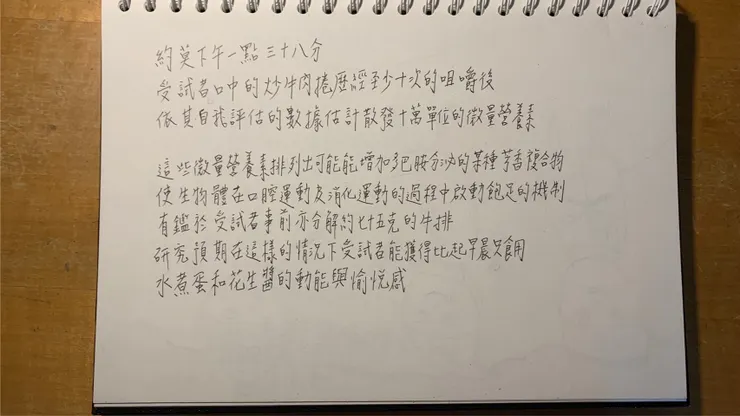 約莫下午一點三十八分
受試者口中的炒牛肉捲歷經至少十次的咀嚼後
依其自我評估的數據估計散發十萬單位的微量營養素
這些微量營養素排列出可能能增加多巴胺分泌的某種芳香複合物
使生物體在口腔運動及消化運動的過程中啟動飽足的機制
有鑑於受試者事前亦分解約七十五克的牛排
研究預期在這樣的情況下受試者能獲得比起早晨只食用
水煮蛋和花生醬的動能與愉悅感